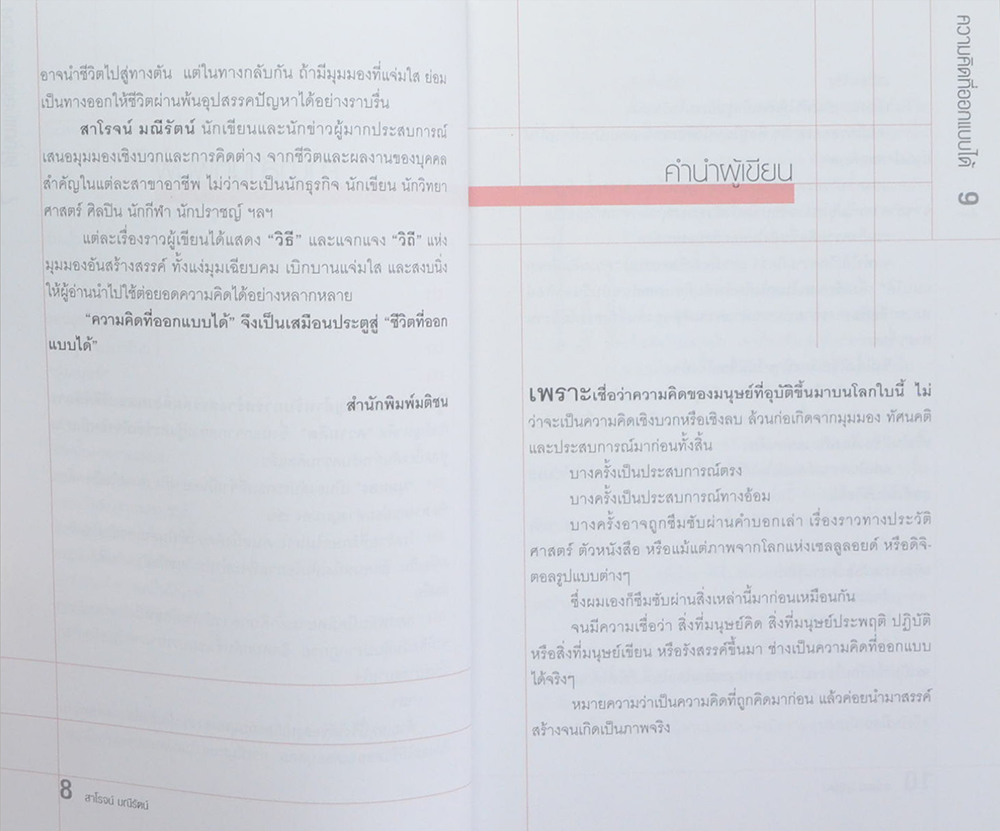 อาจนำชีวิตไปสู่ทางตัน แต่ในทางกลับกัน ถ้ามีมุมมองที่แจ่มใส ย่อม
เป็นทางออกให้ชีวิตผ่านพ้นอุปสรรคปัญหาได้อย่างราบรื่น
สาโรจน์ มณีรัตน์ นักเขียนและนักข่าวผู้มากประสบการณ์
เสนอมุมมองเชิงบวกและการคิดต่าง จากชีวิตและผลงานของบุคคล
สำคัญในแต่ละสาขาอาชีพ ไม่ว่าจะเป็นนักธุรกิจ นักเขียน นักวิทยา
ศาสตร์ ศิลปิน นักกีฬา นักปราชญ์ ฯลฯ
แต่ละเรื่องราวผู้เขียนได้แสดง “วิธี” และแจกแจง “วิถี” แห่ง
มุมมองอันสร้างสรรค์ ทั้งแง่มุมเฉียบคม เบิกบานแจ่มใส และสงบนิ่ง
ให้ผู้อ่านนำไปใช้ต่อยอดความคิดได้อย่างหลากหลาย
“ความคิดที่ออกแบบได้” จึงเป็นเสมือนประตูสู่ “ชีวิตที่ออก
แบบได้”
สำนักพิมพ์มติชน
8 สาโรจน์ มณีรัตน์
ความคิดที่ออกแบบได้ 9
คำนำผู้เขียน
เพราะเชื่อว่าความคิดของมนุษย์ที่อุบัติขึ้นมาบนโลกใบนี้ ไม่
ว่าจะเป็นความคิดเชิงบวกหรือเชิงลบ ล้วนก่อเกิดจากมุมมอง ทัศนคติ
และประสบการณ์มาก่อนทั้งสิ้น
บางครั้งเป็นประสบการณ์ตรง
บางครั้งเป็นประสบการณ์ทางอ้อม
บางครั้งอาจถูกซึมซับผ่านคำบอกเล่า เรื่องราวทางประวัติ
ศาสตร์ ตัวหนังสือ หรือแม้แต่ภาพจากโลกแห่งเซลลูลอยด์ หรือดิจิ-
ตอลรูปแบบต่างๆ
ซึ่งผมเองก็ซึมซับผ่านสิ่งเหล่านี้มาก่อนเหมือนกัน
จนมีความเชื่อว่า สิ่งที่มนุษย์คิด สิ่งที่มนุษย์ประพฤติ ปฏิบัติ
หรือสิ่งที่มนุษย์เขียน หรือรังสรรค์ขึ้นมา ช่างเป็นความคิดที่ออกแบบ
ได้จริงๆ
หมายความว่าเป็นความคิดที่ถูกคิดมาก่อน แล้วค่อยนำมาสรรค์
สร้างจนเกิดเป็นภาพจริง